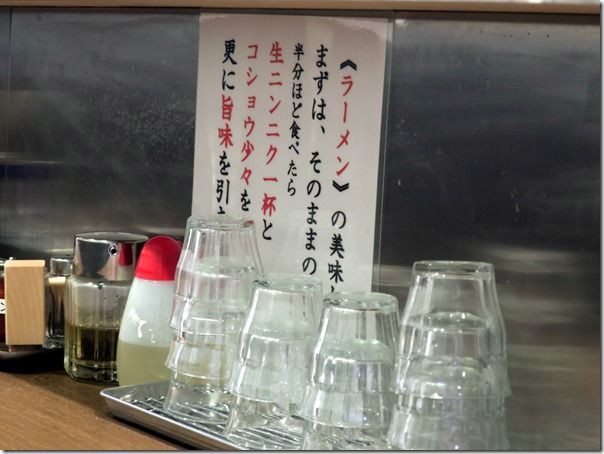 《ラーメン》の美味し
まずは、そのままの
半分ほど食べたら
生ニンニク一杯と
コショウ少々を
更に旨味を引
ン